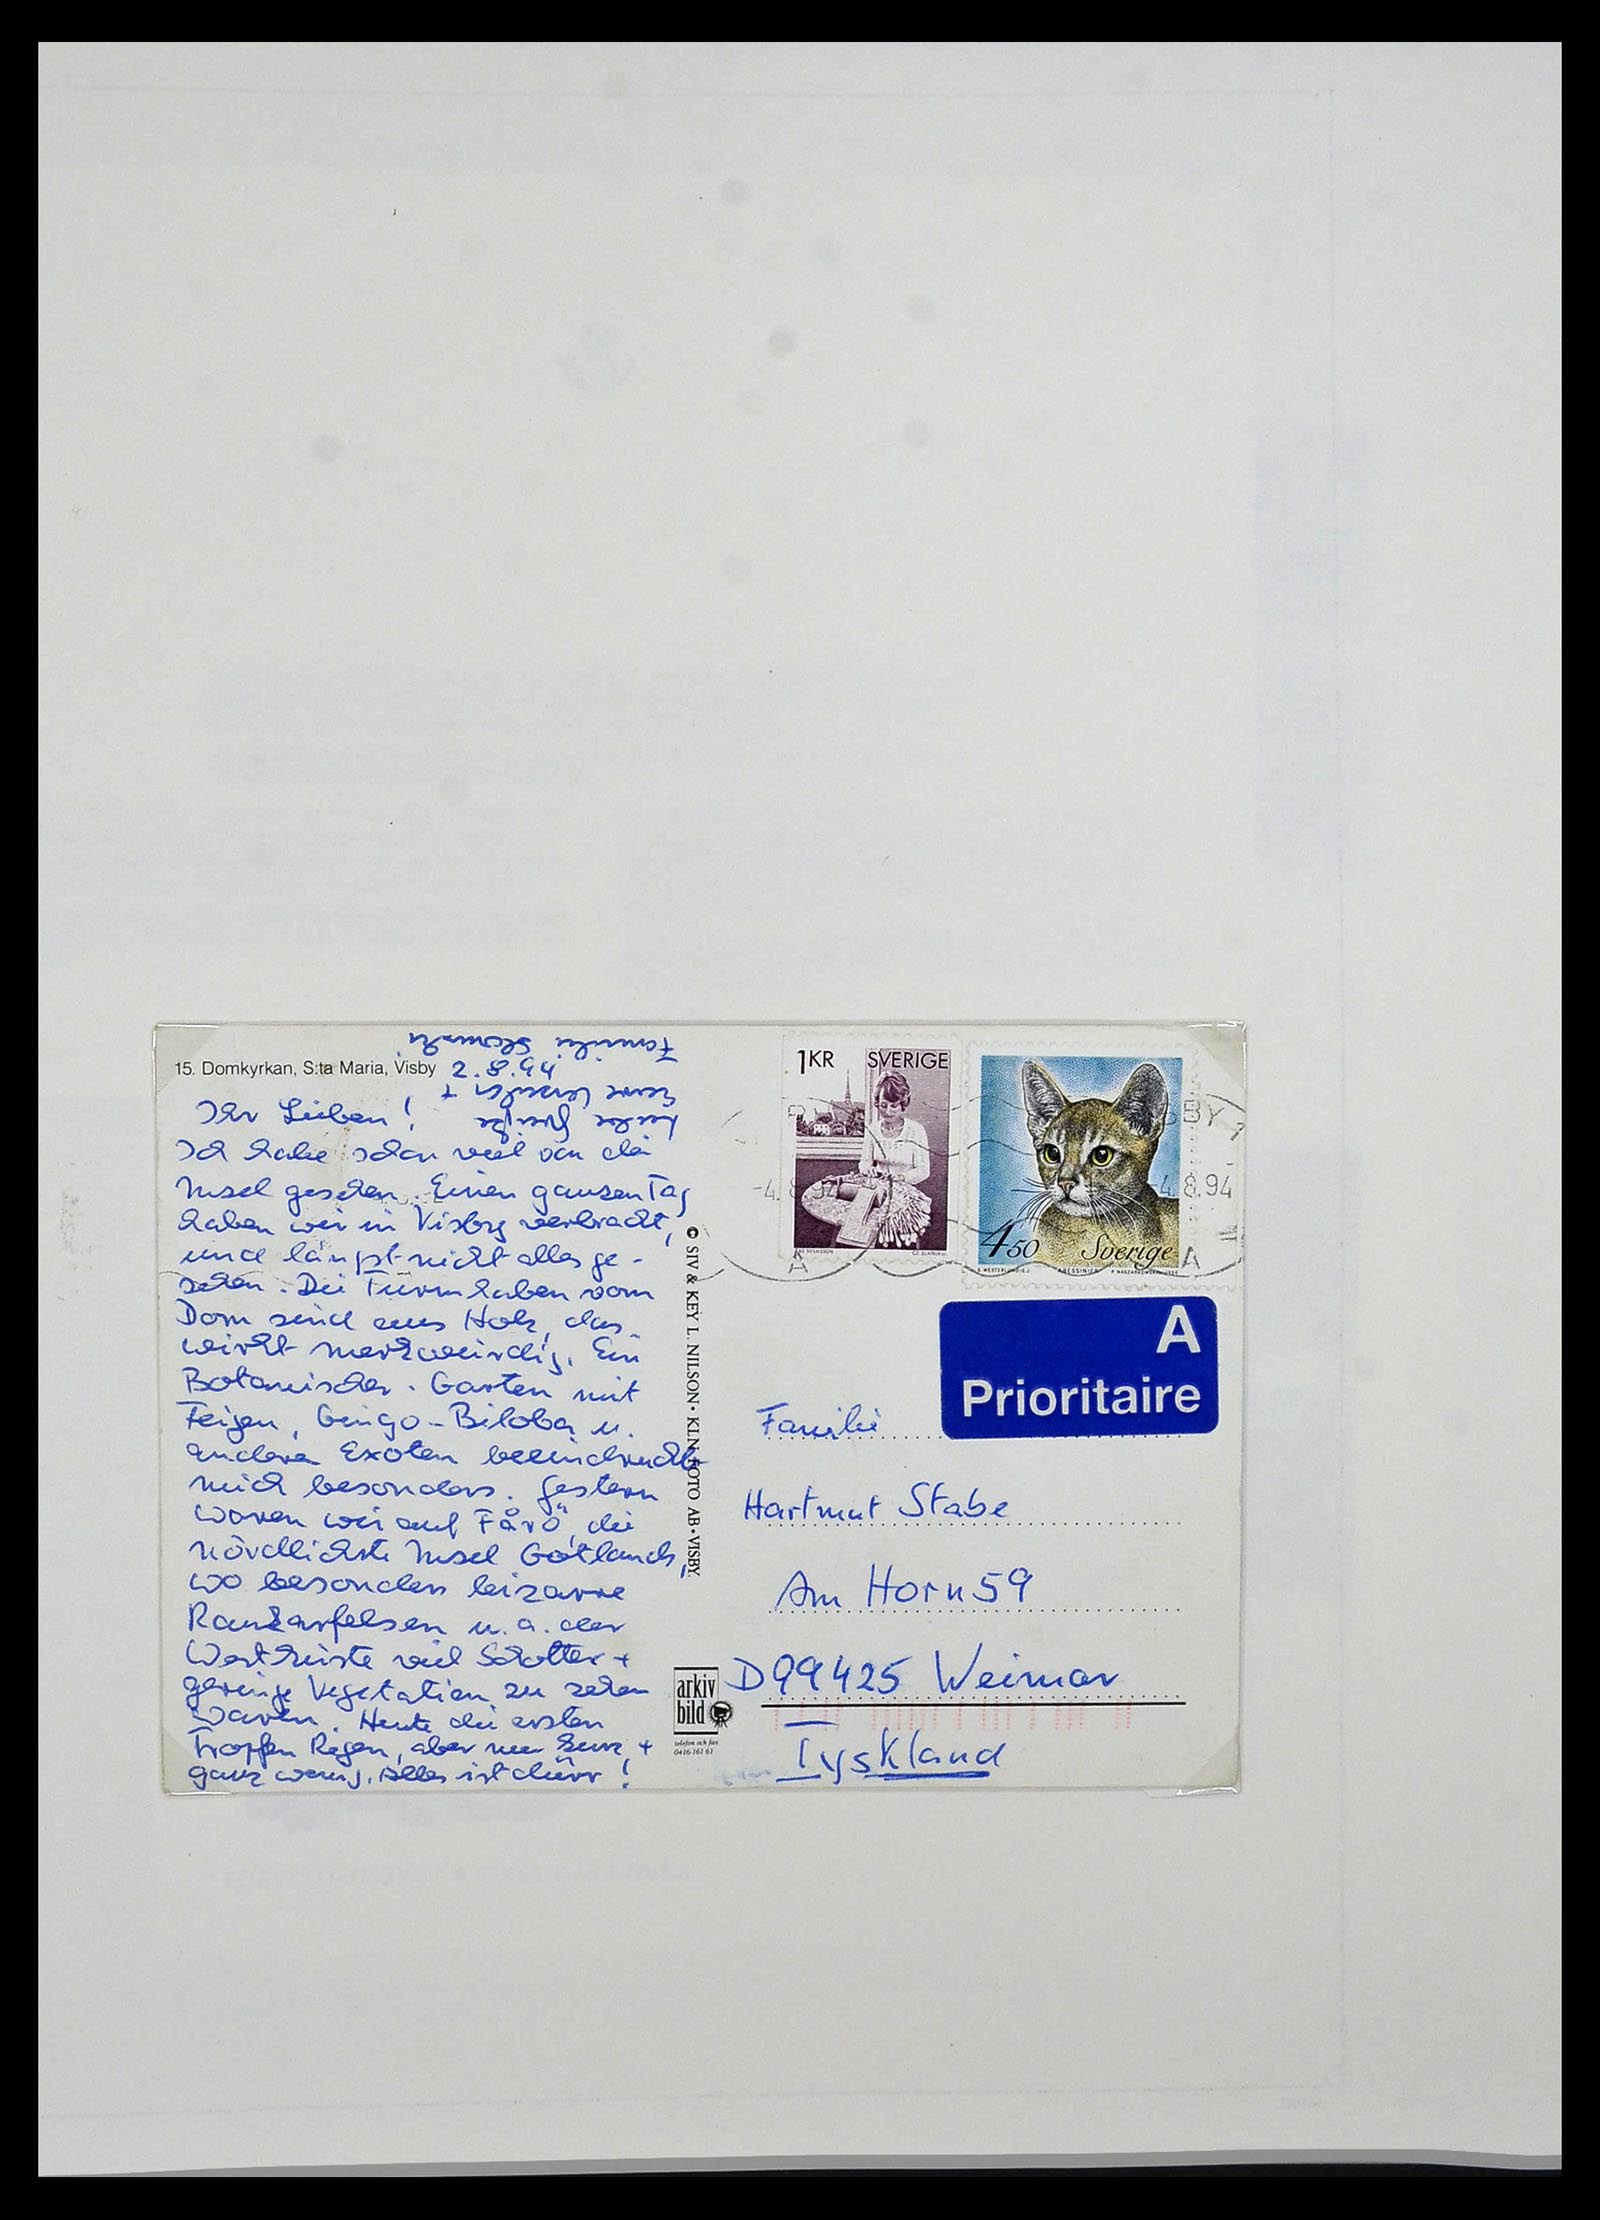 15. Domkyrkan, S:ta Maria, Visby
2.8.94
Ihr Lieben!
Ich habe schon viel von der
Insel gesehen. Einen ganzen Tag
haben wir in Visby verbracht,
und längst nicht alles ge-
sehen. Die Turmhauben vom
Dom sind aus Holz, das
wirkt merkwürdig. Ein
Botanischer Garten mit
Feigen, Gingo-Biloba u.
andere Exoten beeindruckt
mich besonders. Gestern
waren wir auf Fårö, die
nördlichste Insel Gotlands,
wo besonders bizarre
Raukarfelsen u. a. der
Westküste viel Schotter +
geringe Vegetation zu sehen
waren. Heute die ersten
Tropfen Regen, aber nur kurz +
ganz wenig. Alles ist dürr!
Familie
© SIV & KEY L. NILSON • KLN-FOTO AB • VISBY.
arkiv
bild
telefon och fax
0416 161 61
1KR SVERIGE
450 Sverige
BBY 1
-4.8.94
4.8.94
A
A
A
Prioritaire
Familie
Hartmut Stabe
Am Horn 59
D 99425 Weimar
Tyskland